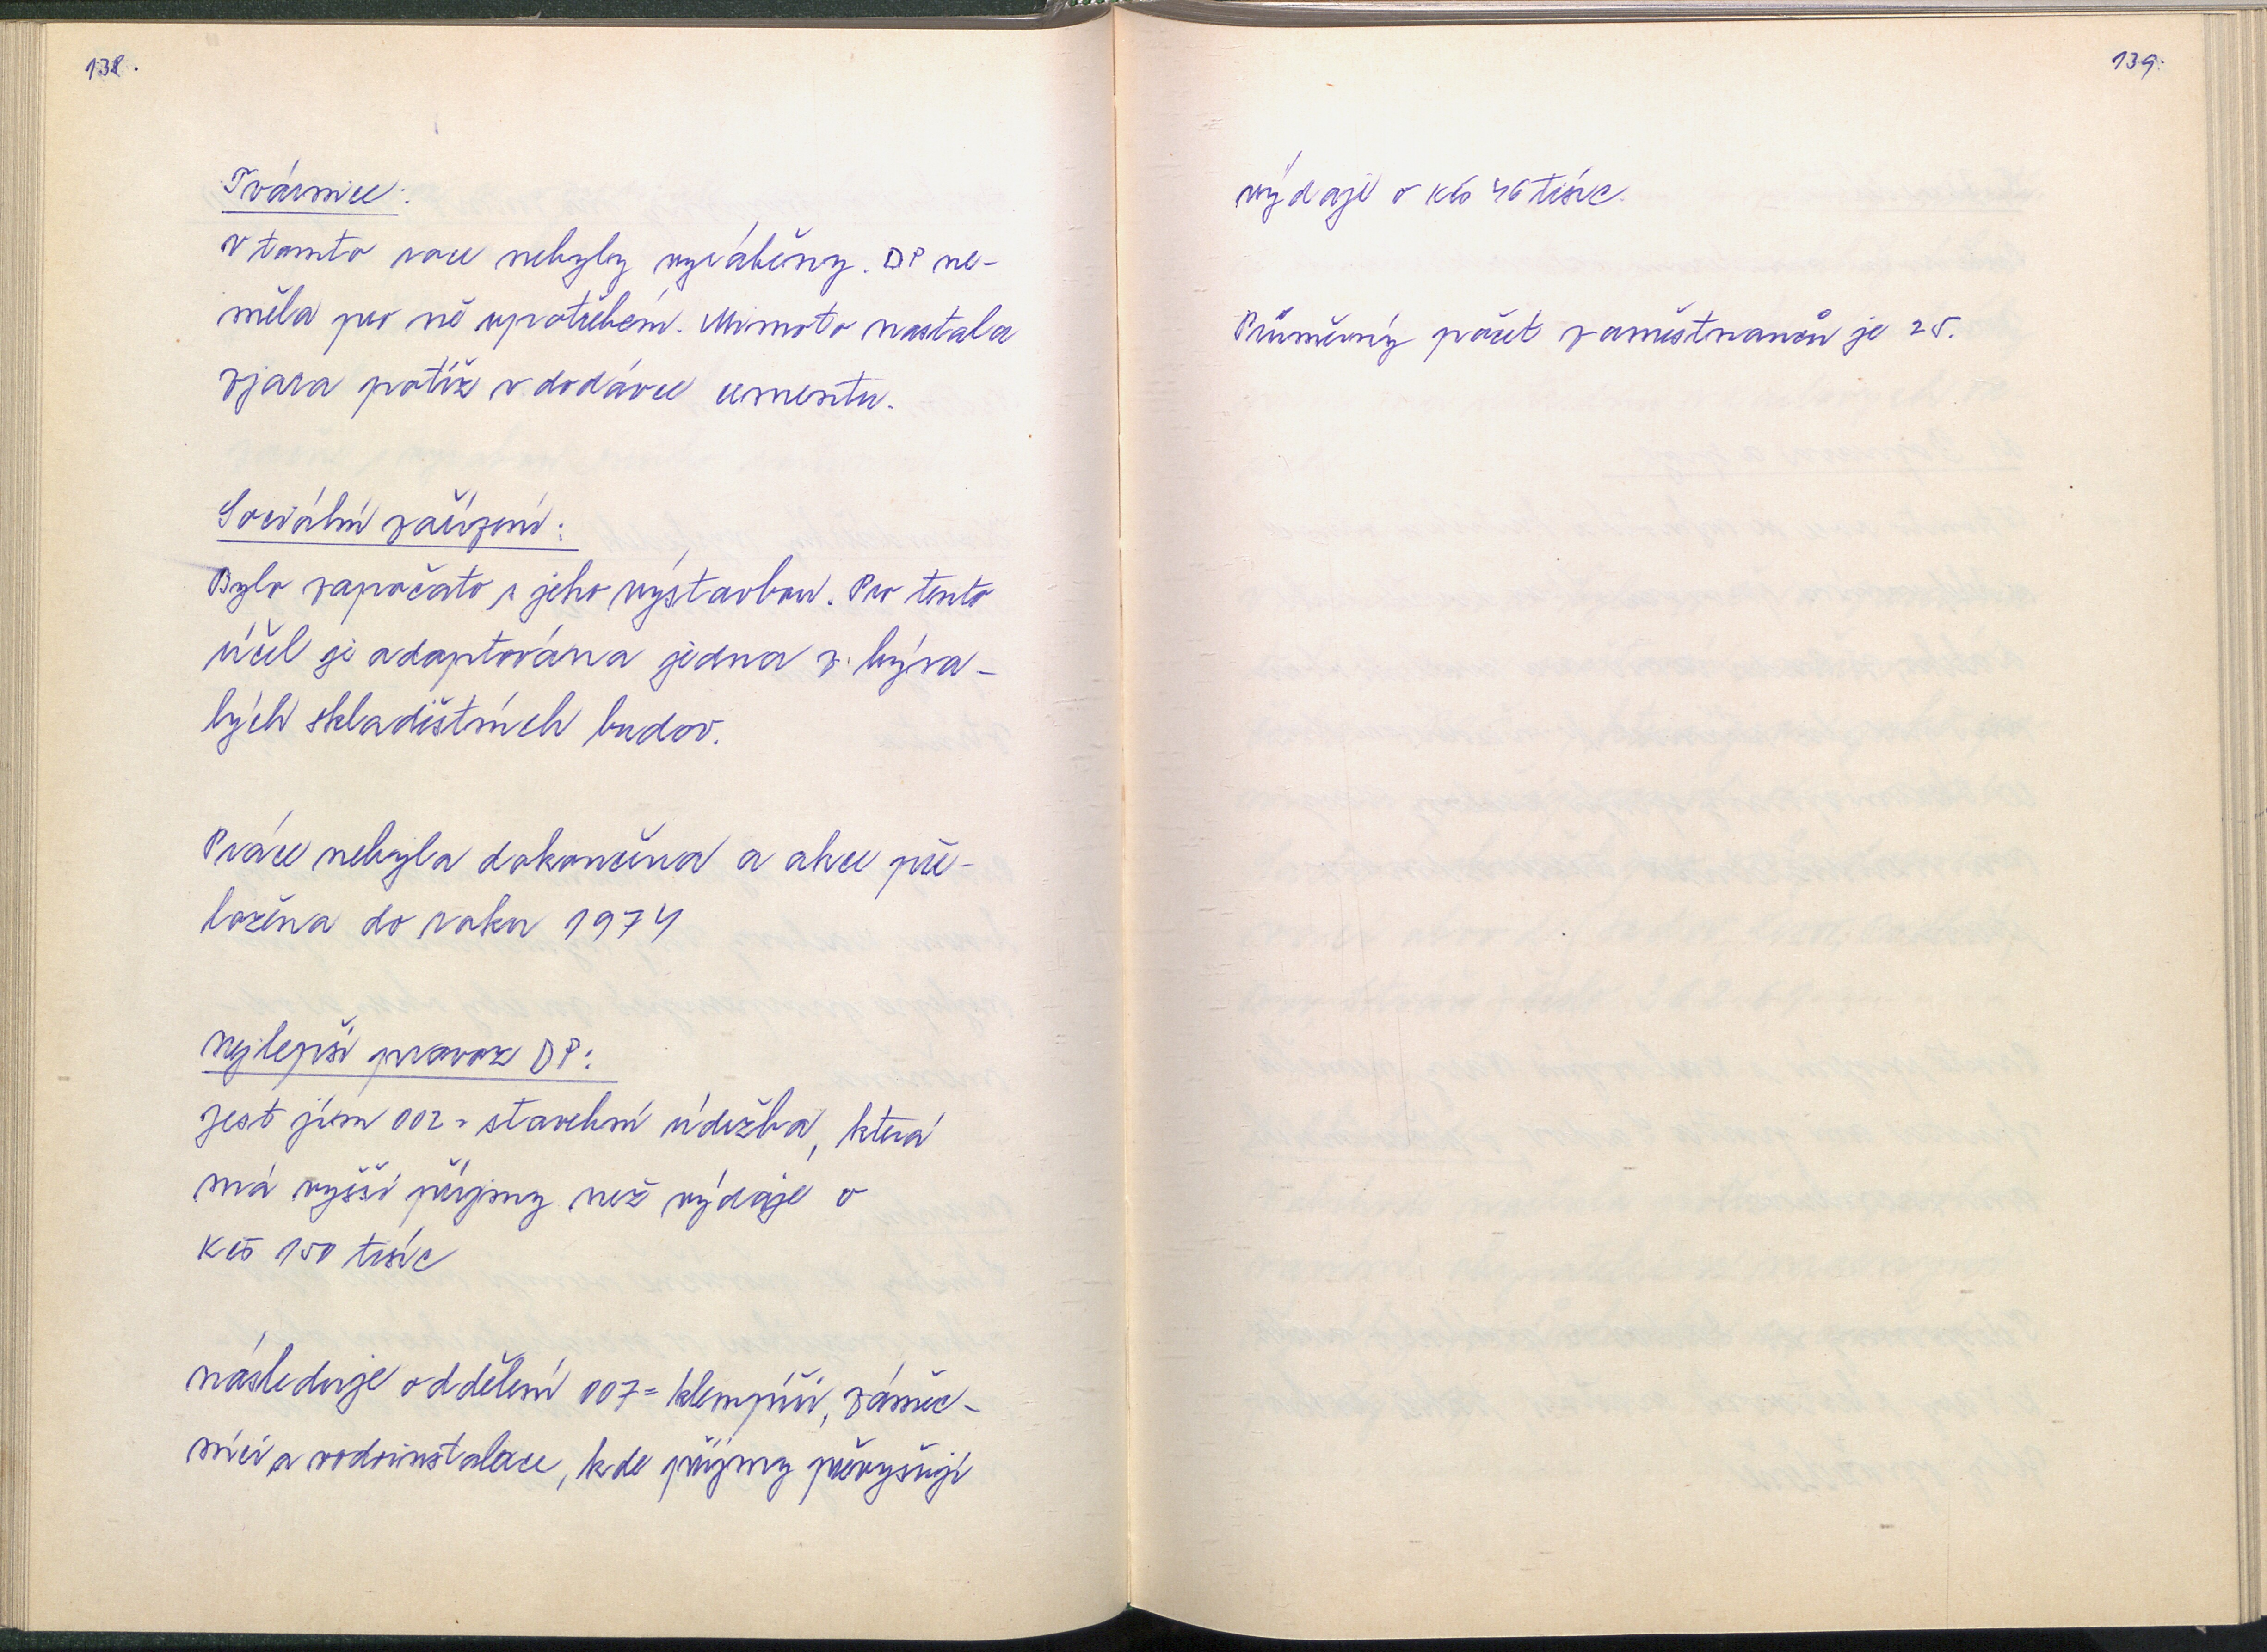 138.
Tvárnice:
V tomto roce nebyly vyráběny. DP ne-
měla pro ně upotřebení. Mimoto nastala
zjara potíž v dodávce cementu.
Sociální zařízení:
Bylo započato s jeho výstavbou. Pro tento
účel je adaptována jedna z býva-
lých skladištních budov.
Práce nebyla dokončena a akce pře-
ložena do roku 1974
Nejlepší provoz DP:
jest jím 002 = stavební údržba, která
má vyšší příjmy než výdaje o
Kčs 150 tisíc
následuje oddělení 007 = klempíři, zámeč-
níci a vodoinstalace, kde příjmy převyšují
139.
výdaje o Kčs 46 tisíc.
Průměrný počet zaměstnanců je 25.